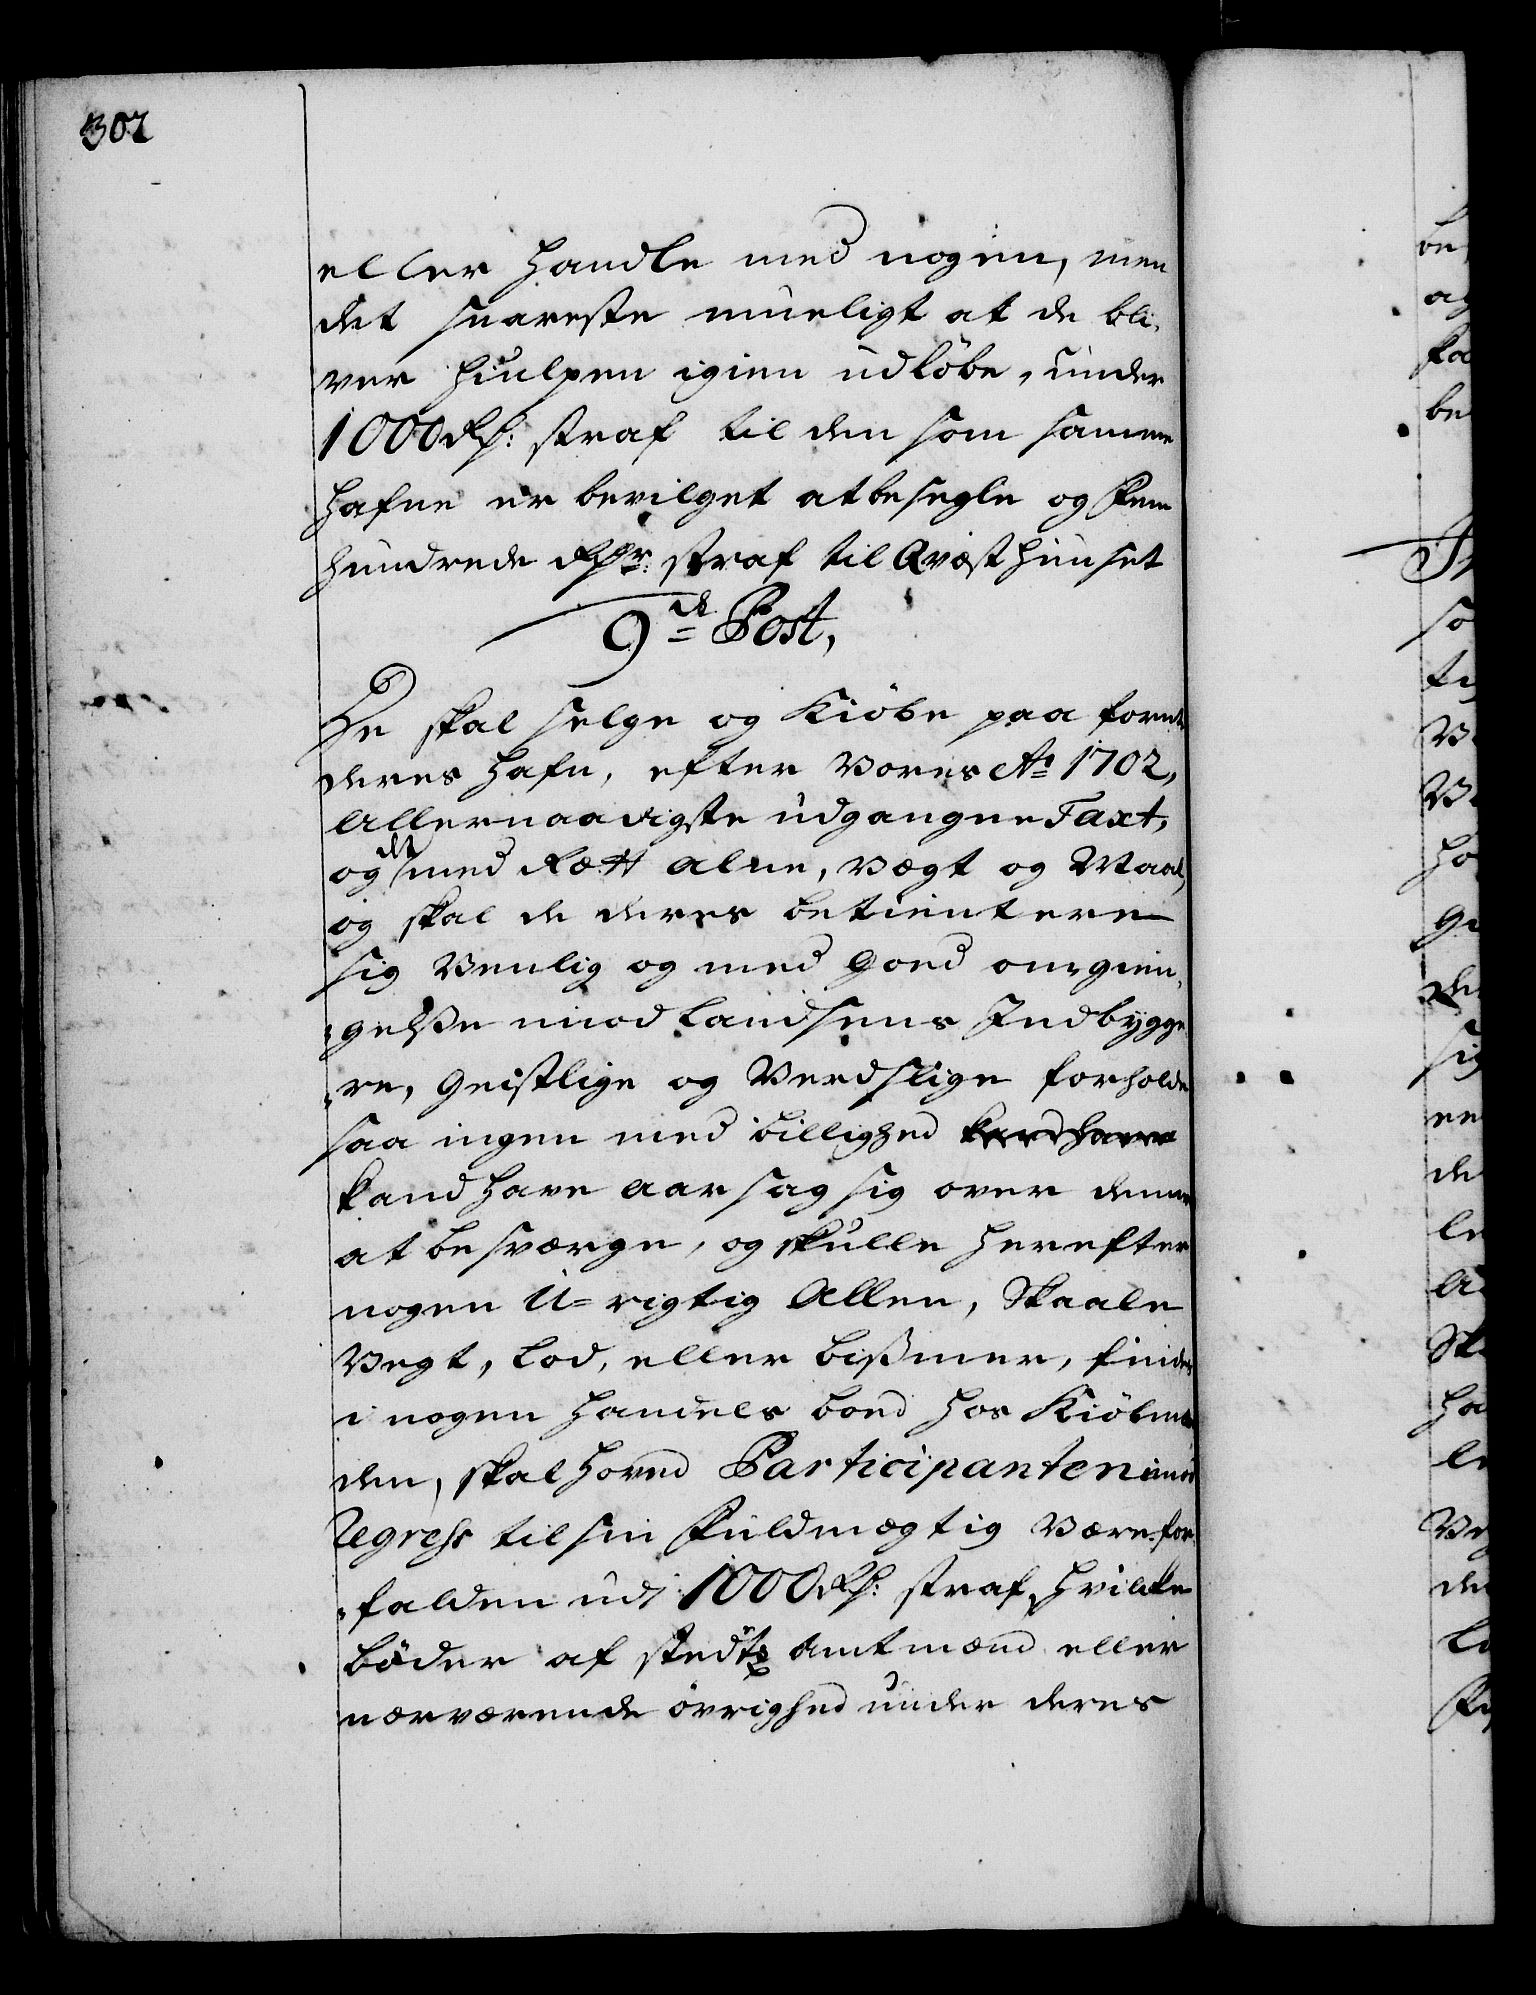 302
eller Handle med nogen, men
det snareste mueligt at de bli,
ver hiulpen igien udløbe, under
1000 Rd: straf til den som samme
Hafne er bevilget at besegle og Fem
hundrede Rdr: straf til Qvæsthuuset
9de Post,
De skal selge og Kiöbe paa fornte
deres Hafn, efter Vores Ao 1702,
Allernaadigste udgangne Taxt,
og det med Rætt Alne, Vægt og Maal,
og skal de deres betientere
sig Venlig og med Goed omgien,
gelße imod Landsens Indbygge
re, Geistlige og Verdslige forholde
saa ingen med billighed kand have
kand have aarsag sig over dennem
at besværge, og skulle herefter
nogen U=rigtig Allen, Skaale
Vegt, Lod, eller bißmer, findes
i nogen Handels boed hos Kiöbmæn
den, skal hoved Participanten imod
Regress til sin Fuldmægtig være for,
falden udi 1000 Rd: straf, hvilke
bøder af stedets Amtmænd eller
nærværende övrighed under deres
be
ag
be
so
ti
V
V
ho
de
sig
de
le
Sk
ha
le
Ve